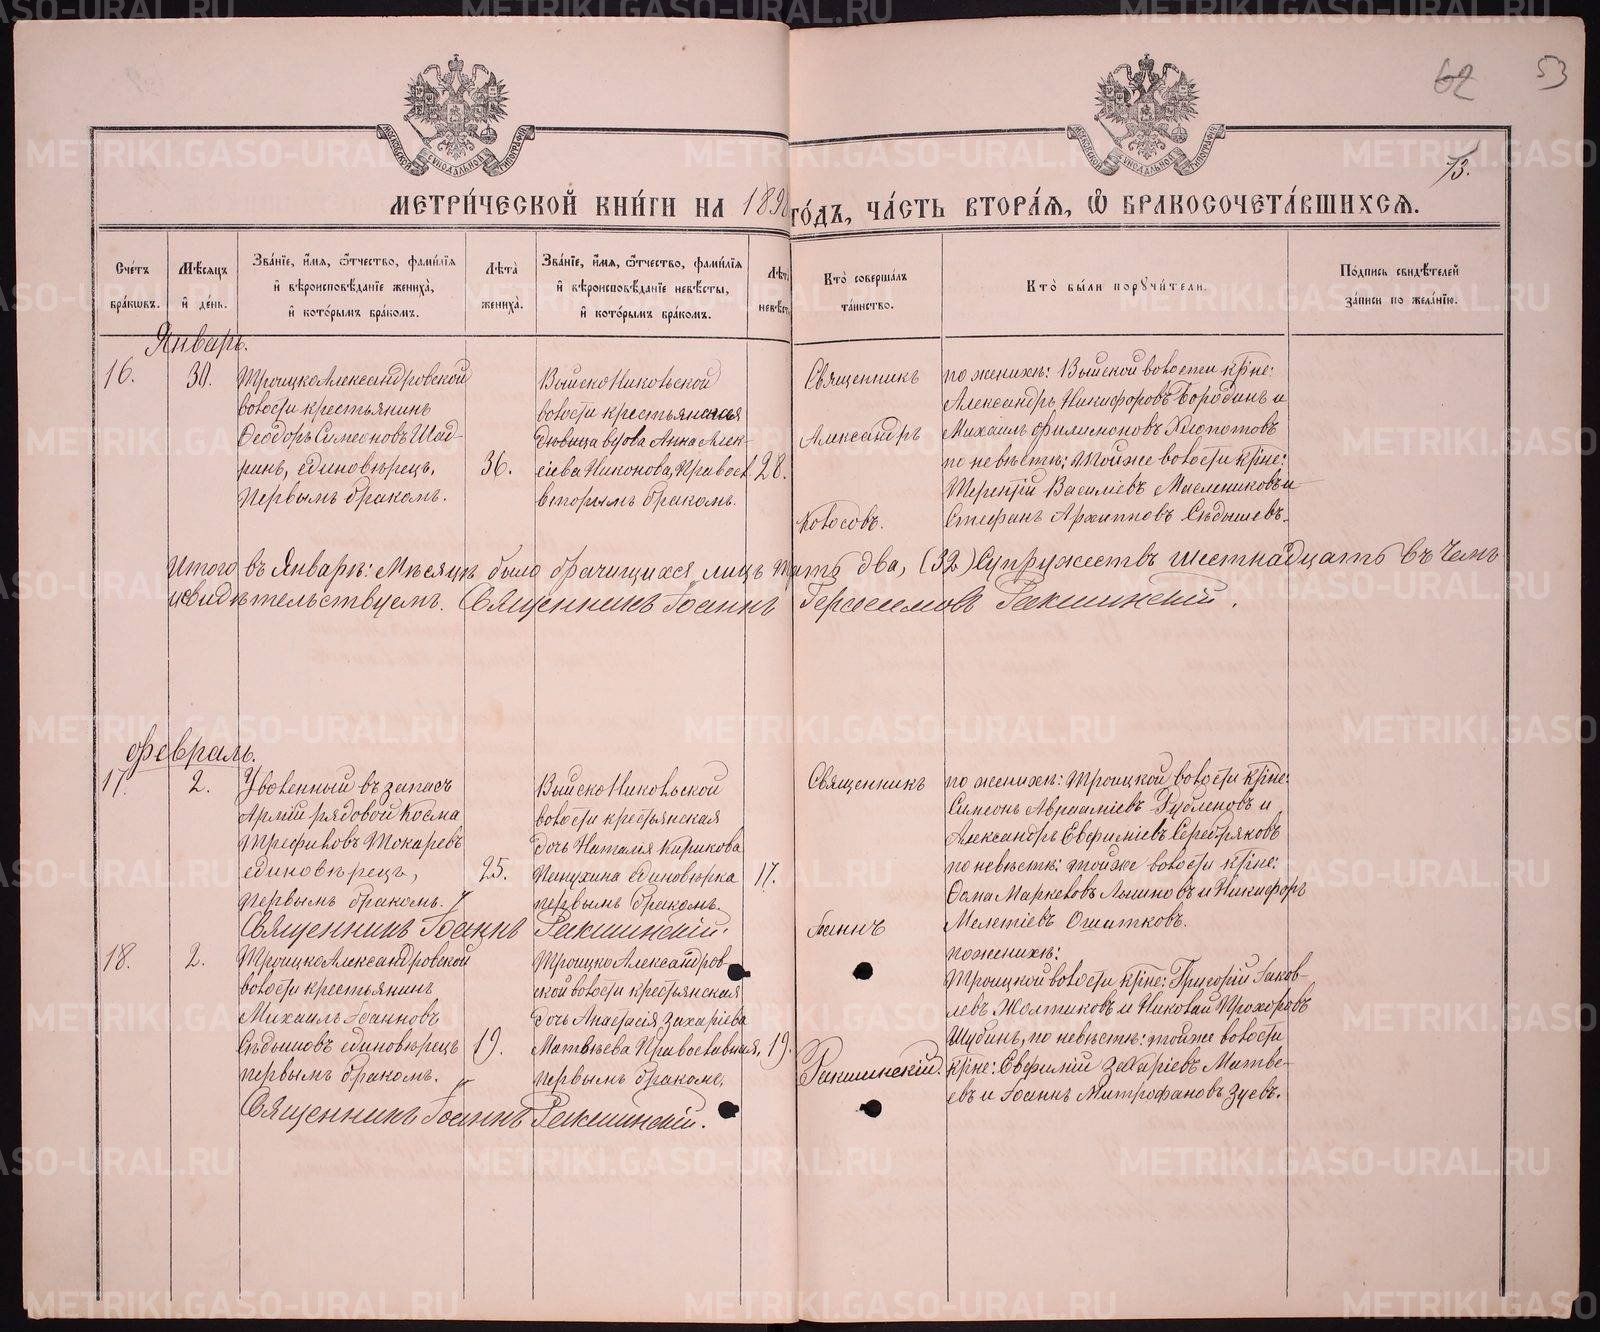 62 53
73.
МОСКОВСКОЙ СѴНОДАЛЬНОЙ ТИПОГРАФІИ
МОСКОВСКОЙ СѴНОДАЛЬНОЙ ТИПОГРАФІИ
МЕТРИ́ЧЕСКОЙ КНИ́ГИ НА 189 ГО́ДЪ, ЧА́СТЬ ВТОРА́Ѧ, Ѽ БРАКОСОЧЕТА́ВШИХСѦ.
Сче́тъ бра́кшвъ.
Мѣ́сѧцъ и҆ де́нь.
Зва́нїе, и҆́мѧ, ѻ҆́тчество, фамı́лїѧ и҆ вѣроисповѣ́данїе жениха̀, и҆ кото́рымъ бра́комъ.
Лѣ́та жениха̀.
Зва́нїе, и҆́мѧ, ѻ҆́тчество, фамı́лїѧ и҆ вѣроисповѣ́данїе невѣ́сты, и҆ кото́рымъ бра́комъ.
Лѣ́т невѣ́ст
Кто̀ соверша́лъ та́инство.
Кто̀ бы́ли порꙋчи́тели.
По́дпись свидѣ́телей за́писи по жела́нїю.
Январь.
16.
30.
Троицко Александровской
волости крестьянинъ
Ѳеодоръ Симеоновъ Шад-
ринъ, единовѣрецъ,
первымъ бракомъ.
36.
Выйско Никольской
волости крестьянская
вдова Анна Алек-
сіева Никонова, Правосл
вторымъ бракомъ.
28.
Священникъ
Александръ
Колосовъ.
по женихѣ: Выйской волости кр͠не:
Александръ Никифоровъ Бородинъ и
Михаилъ Филимоновъ Хлопотовъ
по невѣстѣ: Той же волости кр͠не:
Терентій Василіевъ Масленниковъ и
Стефанъ Архипповъ Сѣдышевъ.
Итого въ Январѣ: Мѣсяцѣ было брачущихся лицъ т дть два, (32) Супружествъ шестнадцать въ чемъ
и свидѣтельствуемъ. Священникъ Іоаннъ Герасимовъ Ракшинскій.
Февраль.
17.
2.
Уволенный въ запасъ
Арміи рядовой Косма
Трефиловъ Токаревъ
единовѣрецъ,
первымъ бракомъ.
25.
Выйско Никольской
волости крестьянская
дочь Наталія Кирикова
единовѣрка
первымъ бракомъ.
17.
Священникъ
Іоаннъ
Ракшинскій.
по женихѣ: Троицкой волости кр͠не:
Симеонъ Авраамiевъ Губленовъ и
Александръ Евфиміевъ Серебряковъ
по невѣстѣ: той же волости кр͠не:
Ѳома Маркеловъ и Никифоръ
Мелетіевъ Ошатковъ.
Священникъ Іоаннъ Ракшинскій.
18.
2.
Троицко Александровской
волости крестьянинъ
Михаилъ Іоанновъ
Сѣдышовъ единовѣрецъ
первымъ бракомъ.
19.
Троицко Александров-
ской волости крестьянская
дочь Анастасія Захаріева
Матвѣева Православная,
первымъ бракомъ.
19.
по женихѣ:
Троицкой волости кр͠не: Григорій Іаков-
левъ Жолтиковъ и Николай Прохоровъ
Шубинъ, по невѣстѣ: той же волости
кр͠не: Евфимій Захаріевъ Матве-
евъ и Іоаннъ Митрофановъ Зуевъ.
Священникъ Іоаннъ Ракшинскій.
METRIKI.GASO-URAL.RU